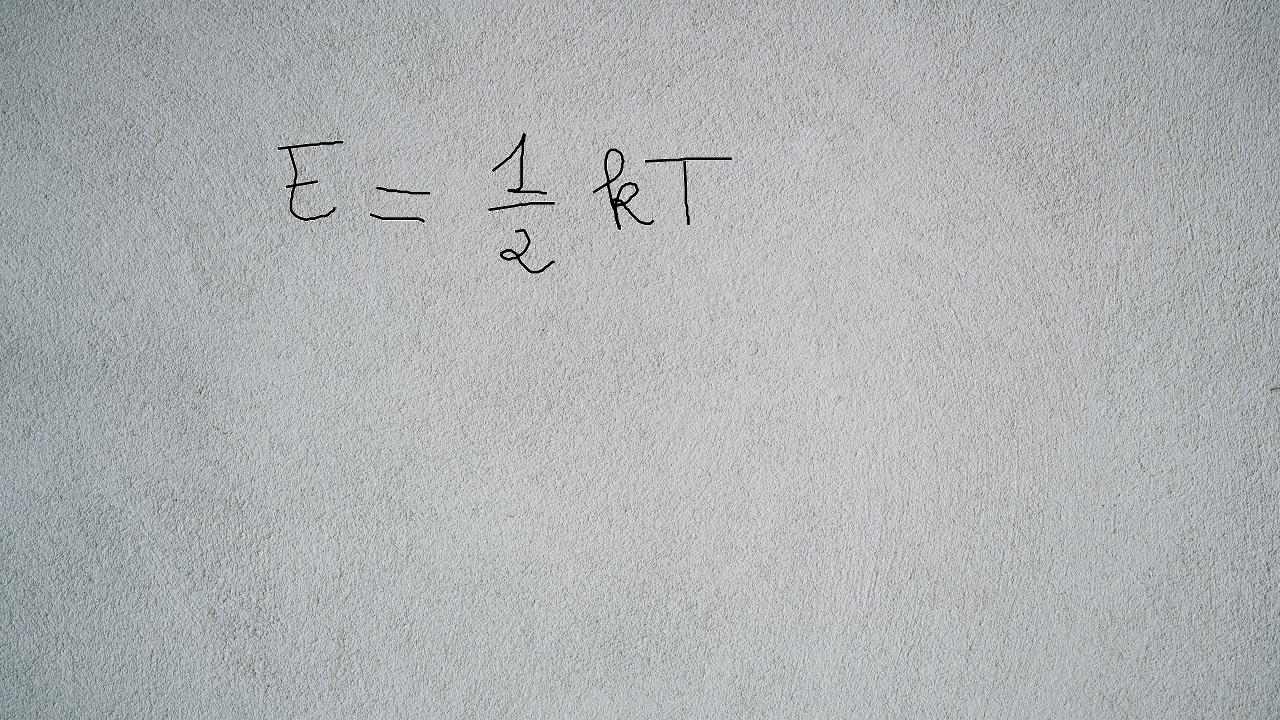 E = 1/2 kT